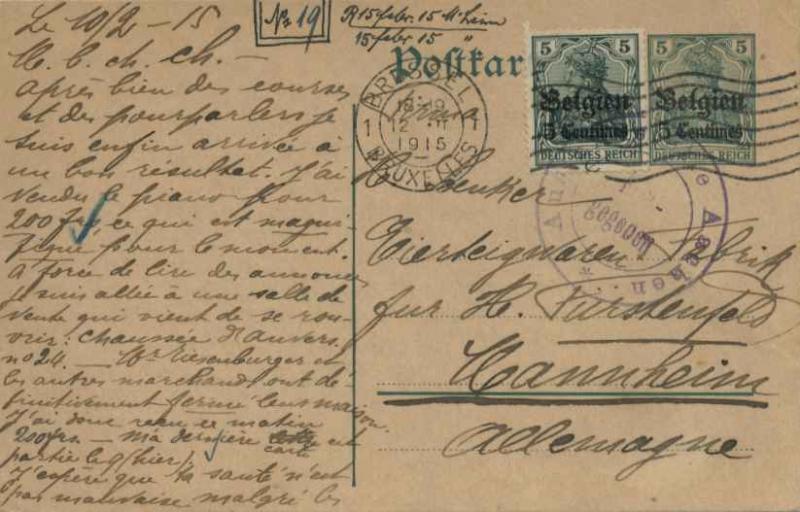 Le 10/2 - 15
M. b. ch. ch. -
après bien des courses
et des pourparlers je
suis enfin arrivée à
un bon résultat. J'ai
vendu le piano pour
200 frs, ce qui est magni-
fique pour le moment.
à force de lire des annonces
je suis allée à une salle de
vente qui vient de se rou-
vrir: chaussée d'Anvers
no 24. - Mr Riesenburger et
les autres marchands ont dé-
finitivement fermé leurs maison.
J'ai donc reçu ce matin
200 frs. - ma dernière carte est
partie le 9 (hier)
J'espère que ta santé n'est
pas mauvaise malgré les
No 19
R 15 febr. 15 M.
15 febr. 15 "
Postkar
BRÜSSEL
12 II
1915
BRUXELLES
1 1
5 5
Belgien
5 Centimes
DEUTSCHES REICH
5 5
Belgien
5 Centimes
DEUTSCHES REICH
Firma
H. Schenker
Eierteigwaren Fabrik
fur H. Fürstenfeld
Mannheim
Allemagne
Aachen